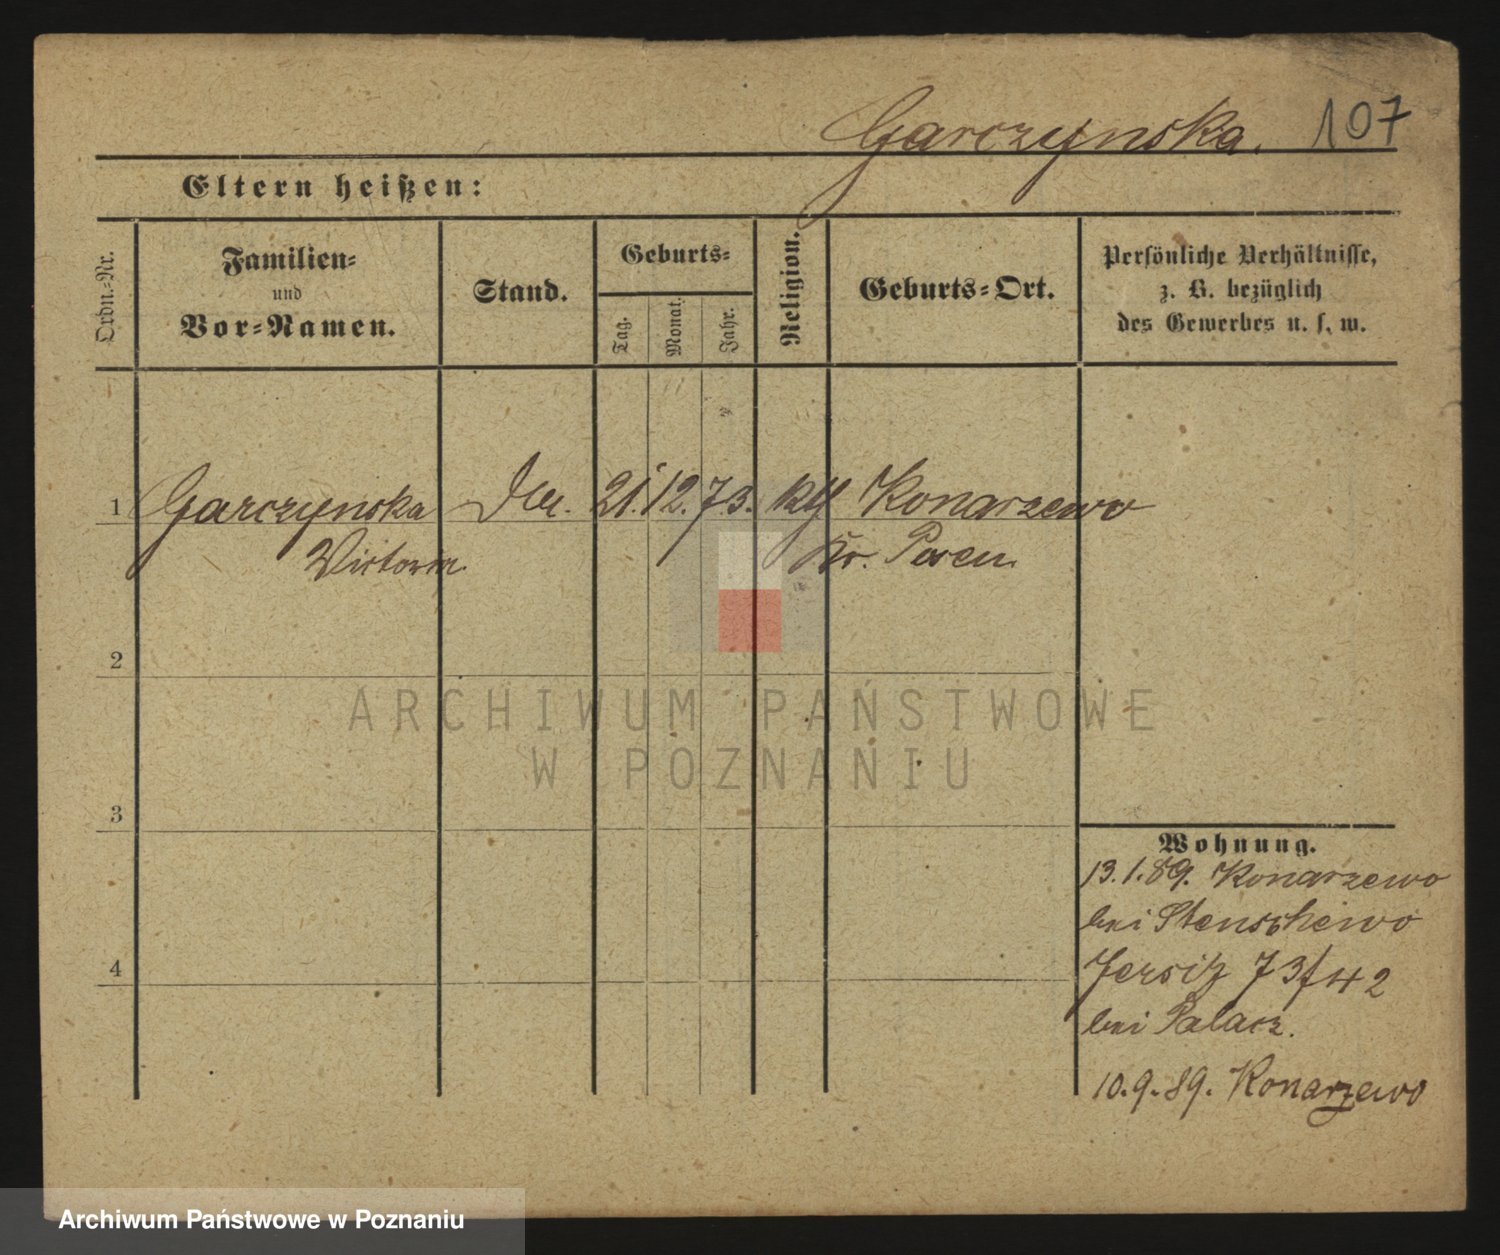 Garczynska. 107
Eltern heißen:
Ordn.-Nr.
Familien-
und
Vor-Namen.
Stand.
Geburts-
Tag.
Monat.
Jahr.
Religion.
Geburts-Ort.
Persönliche Verhältnisse,
z. B. bezüglich
des Gewerbes u. s. w.
1 Garczynska 21. 12. 73. kth Konarzewo
Victoria Kr. Posen
2
3
4
Wohnung.
13.1.89. Konarzewo
bei Stenschewo
Jersitz 73/42
bei Palacz.
10.9.89. Konarzewo
ARCHIWUM PAŃSTWOWE
W POZNANIU
Archiwum Państwowe w Poznaniu